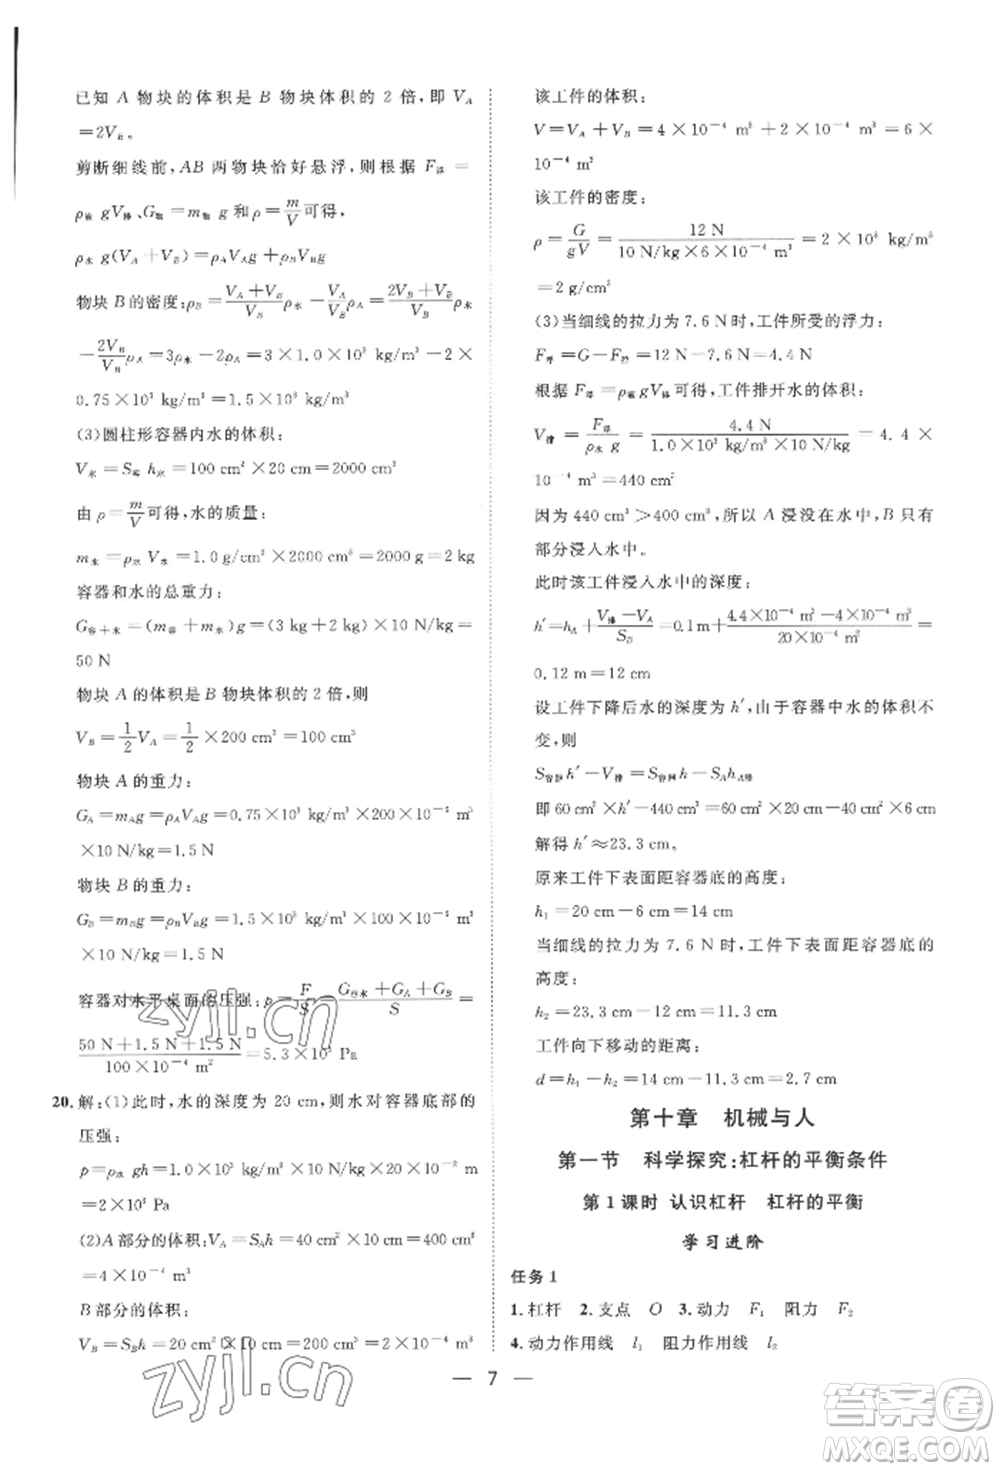 已知 A 物块的体积是 B 物块体积的 2 倍,即 V_A
=2V_B。
剪断细线前,AB 两物块恰好悬浮,则根据 F浮=
ρ液 gV排、G物=m物 g 和 ρ=m/V可得,
ρ水 g(V_A+V_B)=ρ_AV_Ag+ρ_BV_Bg
物块 B 的密度:ρ_B=(V_A+V_B)/V_B ρ水−V_A/V_B ρ_A=(2V_B+V_B)/V_B ρ水
−2V_B/V_B ρ_A=3ρ水−2ρ_A=3×1.0×10³ kg/m³−2×
0.75×10³ kg/m³=1.5×10³ kg/m³
(3)圆柱形容器内水的体积:
V水=S容 h水=100 cm²×20 cm=2000 cm³
由 ρ=m/V可得,水的质量:
m水=ρ水 V水=1.0 g/cm³×2000 cm³=2000 g=2 kg
容器和水的总重力:
G容+水=(m容+m水)g=(3 kg+2 kg)×10 N/kg=
50 N
物块 A 的体积是 B 物块体积的 2 倍,则
V_B=1/2 V_A=1/2×200 cm³=100 cm³
物块 A 的重力:
G_A=m_Ag=ρ_AV_Ag=0.75×10³ kg/m³×200×10⁻⁶ m³
×10 N/kg=1.5 N
物块 B 的重力:
G_B=m_Bg=ρ_BV_Bg=1.5×10³ kg/m³×100×10⁻⁶ m³
×10 N/kg=1.5 N
容器对水平桌面的压强:p=F/S=(G容水+G_A+G_B)/S=
(50 N+1.5 N+1.5 N)/(100×10⁻⁴ m²)=5.3×10³ Pa
20.解:(1)此时,水的深度为 20 cm,则水对容器底部的
压强:
p=ρ水 gh=1.0×10³ kg/m³×10 N/kg×20×10⁻² m
=2×10³ Pa
(2)A 部分的体积:V_A=S_Ah=40 cm²×10 cm=400 cm³
=4×10⁻⁴ m³
B 部分的体积:
V_B=S_Bh=20 cm²×10 cm=200 cm³=2×10⁻⁴ m³
该工件的体积:
V=V_A+V_B=4×10⁻⁴ m³+2×10⁻⁴ m³=6×
10⁻⁴ m³
该工件的密度:
ρ=G/gV=12 N/(10 N/kg×6×10⁻⁴ m³)=2×10³ kg/m³
=2 g/cm³
(3)当细线的拉力为 7.6 N时,工件所受的浮力:
F浮=G−F拉=12 N−7.6 N=4.4 N
根据 F浮=ρ液 gV排可得,工件排开水的体积:
V排=F浮/(ρ水 g)=4.4 N/(1.0×10³ kg/m³×10 N/kg)=4.4×
10⁻⁴ m³=440 cm³
因为440 cm³>400 cm³,所以 A 浸没在水中,B 只有
部分浸入水中。
此时该工件浸入水中的深度:
h′=h_A+(V排−V_A)/S_B=0.1 m+(4.4×10⁻⁴ m³−4×10⁻⁴ m³)/(20×10⁻⁴ m²)=
0.12 m=12 cm
设工件下降后水的深度为 h′,由于容器中水的体积不
变,则
S容器h′−V排=S容器h−S_Ah_A浸
即 60 cm²×h′−440 cm³=60 cm²×20 cm−40 cm²×6 cm
解得 h′≈23.3 cm。
原来工件下表面距容器底的高度:
h₁=20 cm−6 cm=14 cm
当细线的拉力为 7.6 N 时,工件下表面距容器底的
高度:
h₂=23.3 cm−12 cm=11.3 cm
工件向下移动的距离:
d=h₁−h₂=14 cm−11.3 cm=2.7 cm
第十章 机械与人
第一节 科学探究:杠杆的平衡条件
第 1 课时 认识杠杆 杠杆的平衡
学习进阶
任务 1
1.杠杆 2.支点 O 3.动力 F₁ 阻力 F₂
4.动力作用线 l₁ 阻力作用线 l₂
— 7 —
zyjl.cn
zyjl.cn
答案圈
MXQE.COM